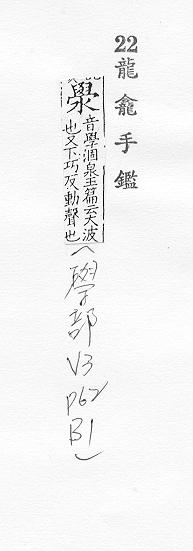 22龍龕手鑑
澩
音學涸泉玉篇云大波
也又下巧反動聲也
(學部 V3 P62 B1)